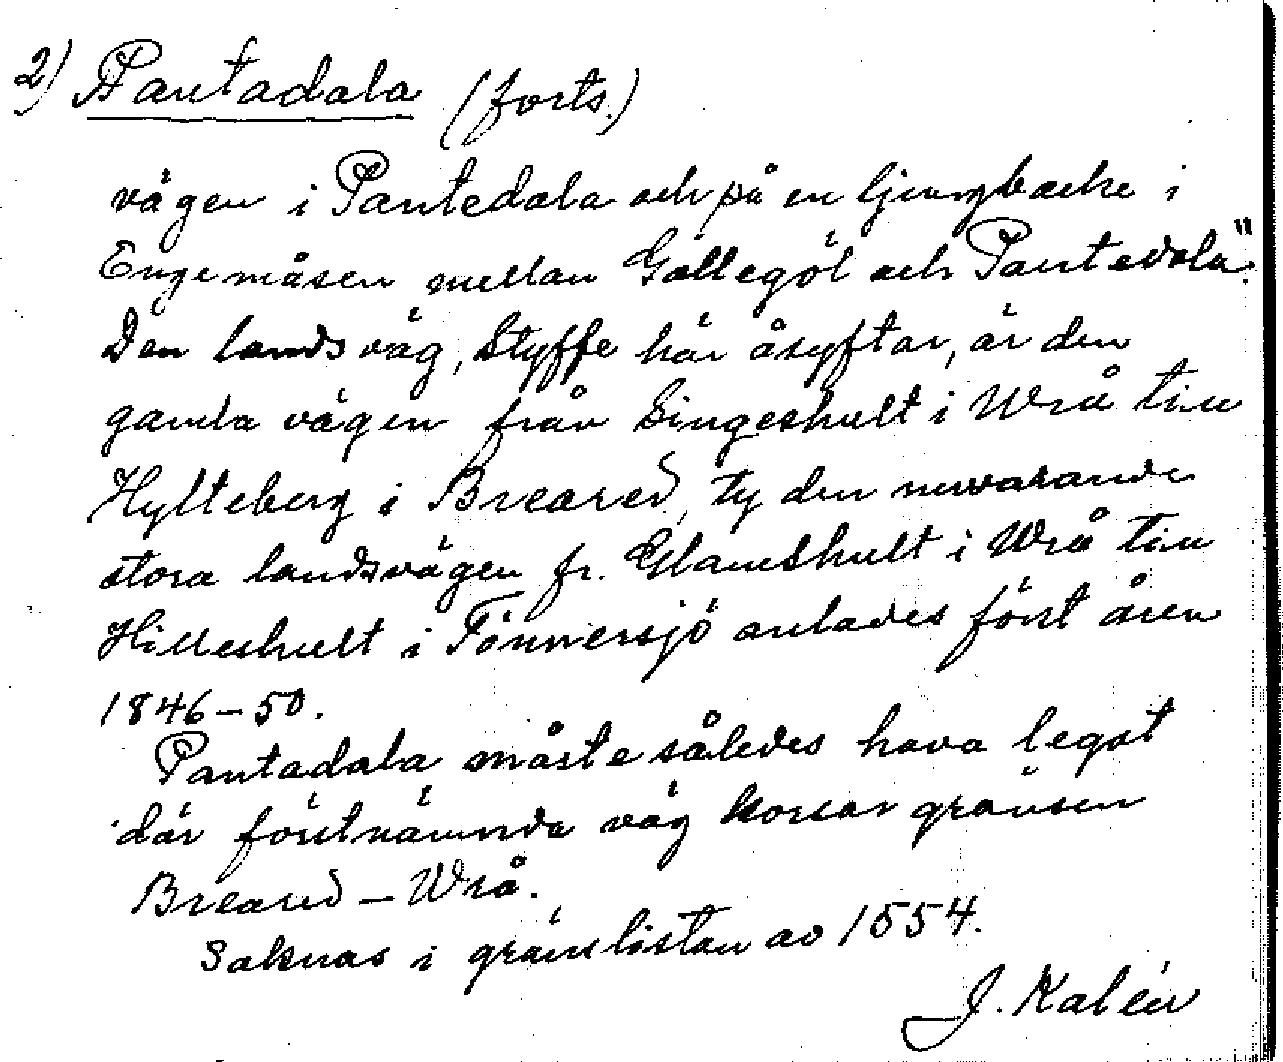 2) Pantadala (forts.)
vägen i Pantedala och på en ljungbacke i
Engemåsen mellan Gällegöl och Pantedala".
Den landsväg, Styffe här åsyftar, är den
gamla vägen från Singeshult i Wrå till
Hylteberg i Breared, ty den nuvarande
stora landsvägen fr. Glamshult i Wrå till
Hilleshult i Tönnersjö anlades först åren
1846-50.
Pantadala måste således hava legat
där förstnämnda väg korsar gränsen
Breared - Wrå.
Saknas i gränslistan av 1554.
J. Kalén